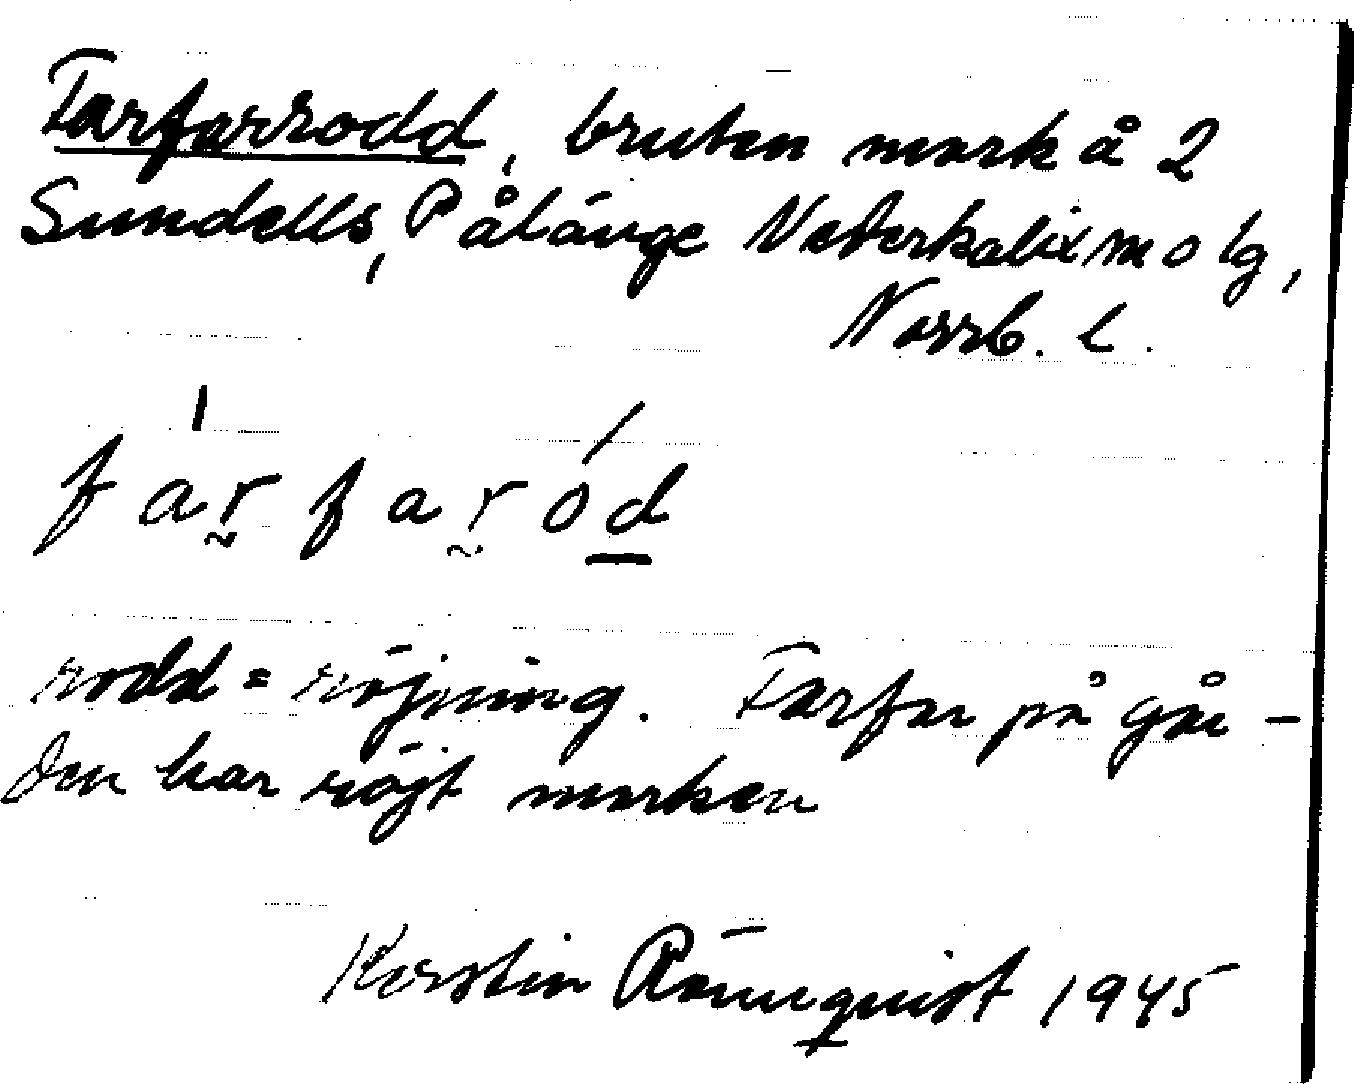 Farfarrodd, bruten mark å 2
Sundells, Pålänge Nederkalix
Norrb. l.
farfaród
rodd = röjning. Farfar på går-
den har röjt marken
Kerstin Rönnquist 1945